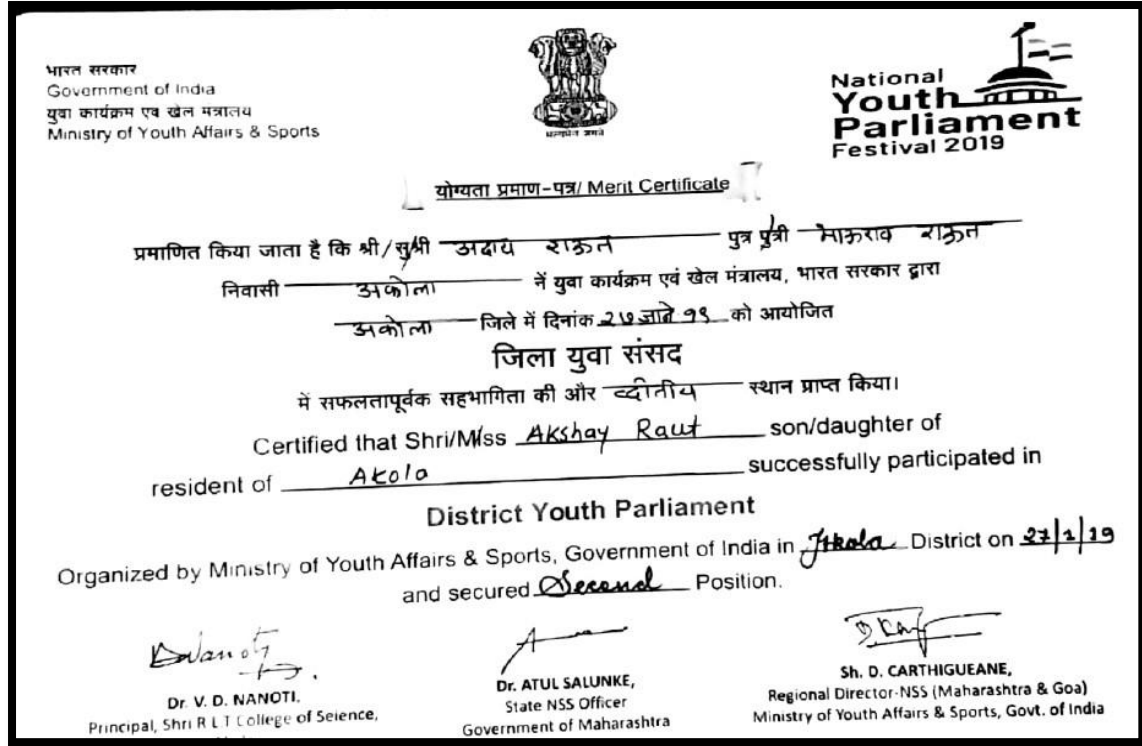 भारत सरकार
Government of India
युवा कार्यक्रम एवं खेल मंत्रालय
Ministry of Youth Affairs & Sports
सत्यमेव जयते
National
Youth
Parliament
Festival 2019
योग्यता प्रमाण-पत्र/ Merit Certificate
प्रमाणित किया जाता है कि श्री/सुश्री अक्षय राऊत पुत्र पुत्री भाऊराव राऊत
निवासी अकोला नें युवा कार्यक्रम एवं खेल मंत्रालय, भारत सरकार द्वारा
अकोला जिले में दिनांक २७ जाने १९ को आयोजित
जिला युवा संसद
में सफलतापूर्वक सहभागिता की और व्दीतीय स्थान प्राप्त किया।
Certified that Shri/Miss Akshay Raut son/daughter of
resident of Akola successfully participated in
District Youth Parliament
Organized by Ministry of Youth Affairs & Sports, Government of India in Akola District on 27/1/19
and secured Second Position.
Dr. V. D. NANOTI,
Principal, Shri R L T College of Science,
Dr. ATUL SALUNKE,
State NSS Officer
Government of Maharashtra
Sh. D. CARTHIGUEANE,
Regional Director-NSS (Maharashtra & Goa)
Ministry of Youth Affairs & Sports, Govt. of India